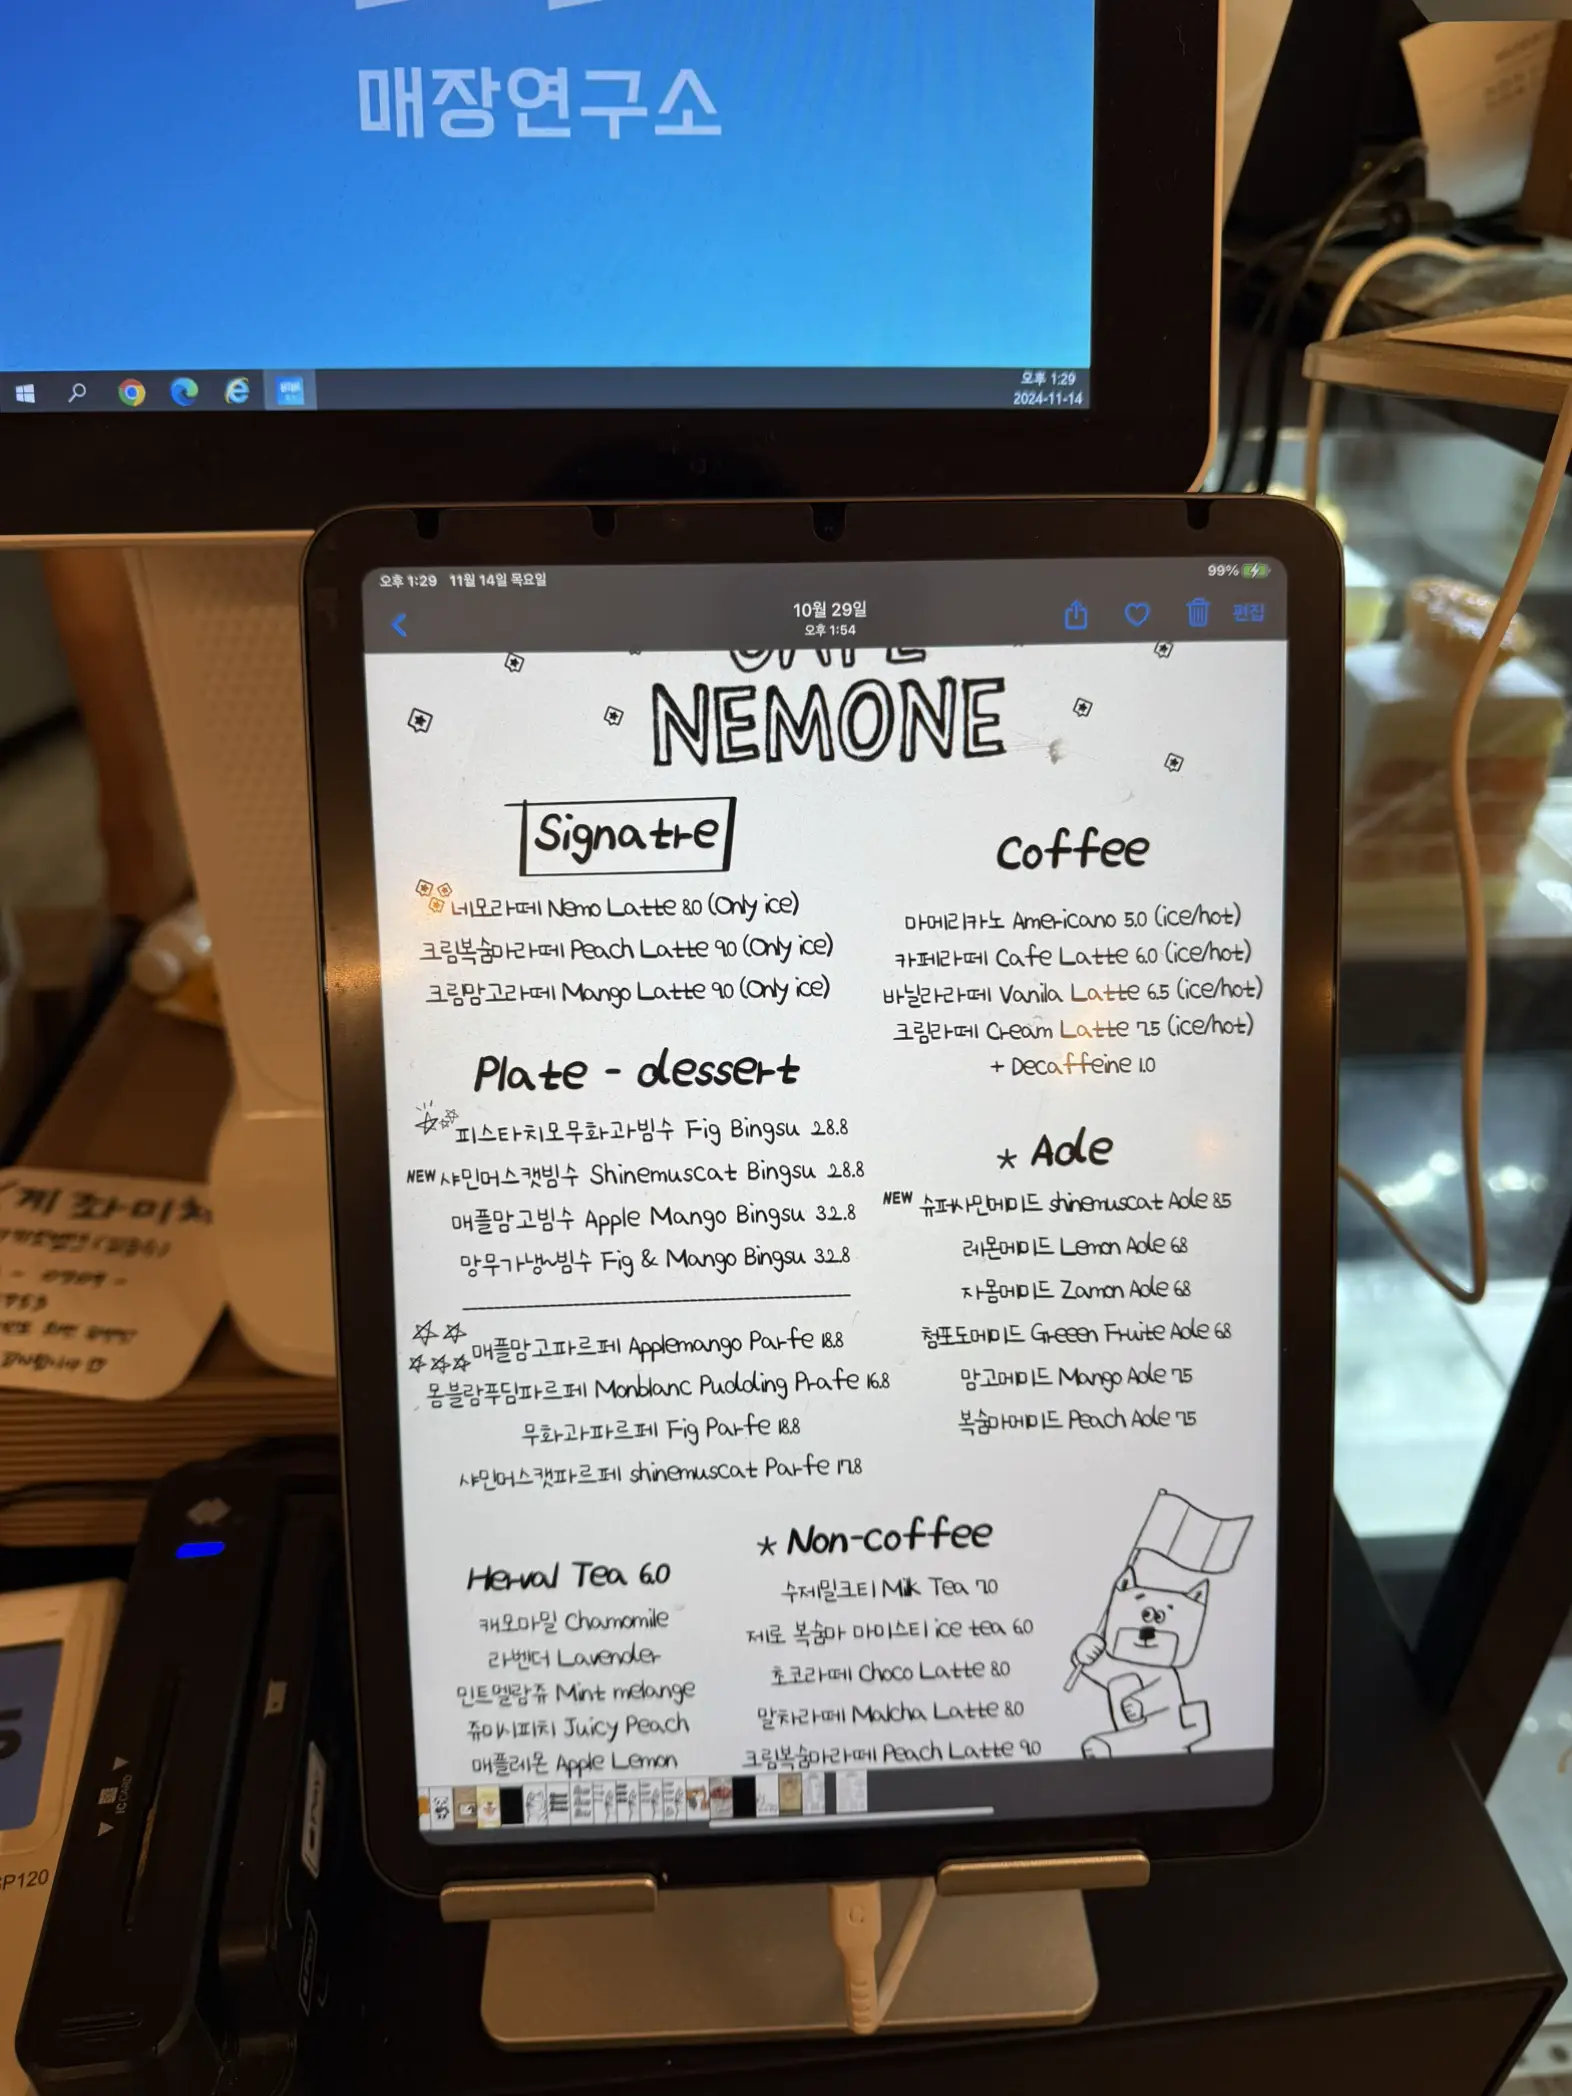 매장연구소
오후 1:29
2024-11-14
오후 1:29 11월 14일 목요일
99%
10월 29일
오후 1:54
편집
CAFE
NEMONE
Signatre
네모라떼 Nemo Latte 8.0 (Only ice)
크림복숭아라떼 Peach Latte 9.0 (Only ice)
크림망고라떼 Mango Latte 9.0 (Only ice)
Plate - dessert
피스타치오무화과빙수 Fig Bingsu 28.8
NEW 샤인머스캣빙수 Shinemuscat Bingsu 28.8
애플망고빙수 Apple Mango Bingsu 32.8
망무가냉~빙수 Fig & Mango Bingsu 32.8
애플망고파르페 Applemango Parfe 18.8
몽블랑푸딩파르페 Monblanc Pudding Prafe 16.8
무화과파르페 Fig Parfe 18.8
샤인머스캣파르페 shinemuscat Parfe 17.8
Coffee
아메리카노 Americano 5.0 (ice/hot)
카페라떼 Cafe Latte 6.0 (ice/hot)
바닐라라떼 Vanila Latte 6.5 (ice/hot)
크림라떼 Cream Latte 7.5 (ice/hot)
+ Decaffeine 1.0
* Ade
NEW 슈퍼샤인에이드 shinemuscat Ade 8.5
레몬에이드 Lemon Ade 6.8
자몽에이드 Zamon Ade 6.8
청포도에이드 Greeen Fruite Ade 6.8
망고에이드 Mango Ade 7.5
복숭아에이드 Peach Ade 7.5
Herval Tea 6.0
캐모마일 Chamomile
라벤더 Lavender
민트멜랑쥬 Mint melange
쥬이시피치 Juicy Peach
애플레몬 Apple Lemon
* Non-coffee
수제밀크티 Milk Tea 7.0
제로 복숭아 아이스티 ice tea 6.0
초코라떼 Choco Latte 8.0
말차라떼 Malcha Latte 8.0
크림복숭아라떼 Peach Latte 9.0
IC CARD
C